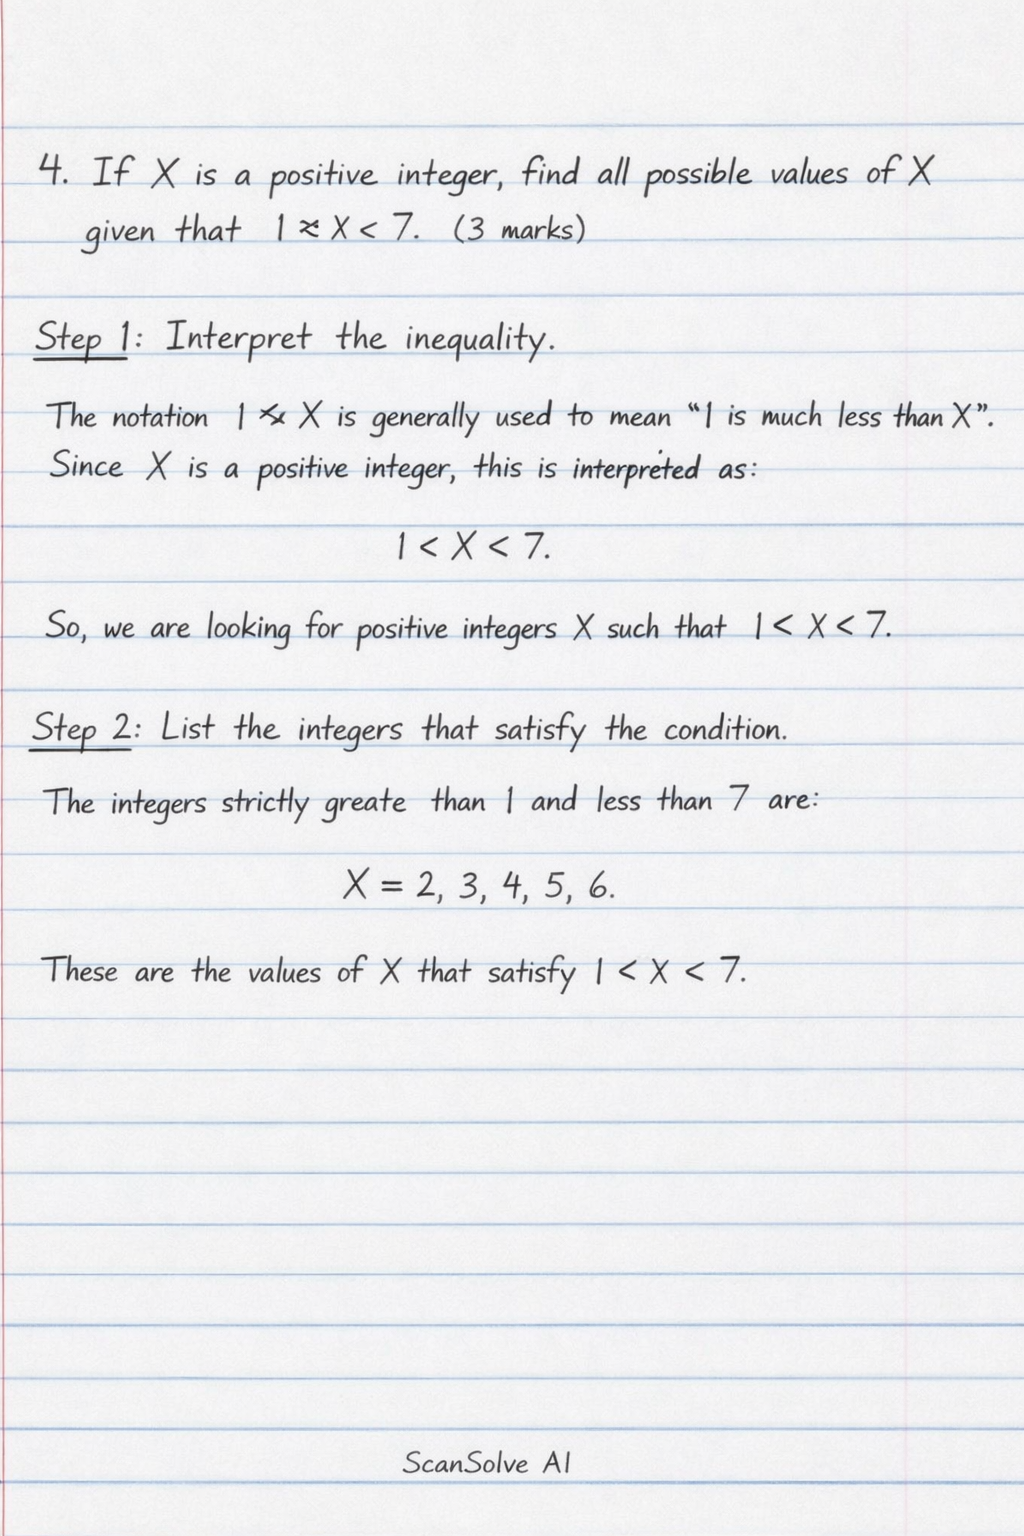 4. If X is a positive integer, find all possible values of X
given that 1 ≈ X < 7. (3 marks)
Step 1: Interpret the inequality.
The notation 1 X is generally used to mean “1 is much less than X”.
Since X is a positive integer, this is interpreted as:
1 < X < 7.
So, we are looking for positive integers X such that 1 < X < 7.
Step 2: List the integers that satisfy the condition.
The integers strictly greate than 1 and less than 7 are:
X = 2, 3, 4, 5, 6.
These are the values of X that satisfy 1 < X < 7.
ScanSolve AI